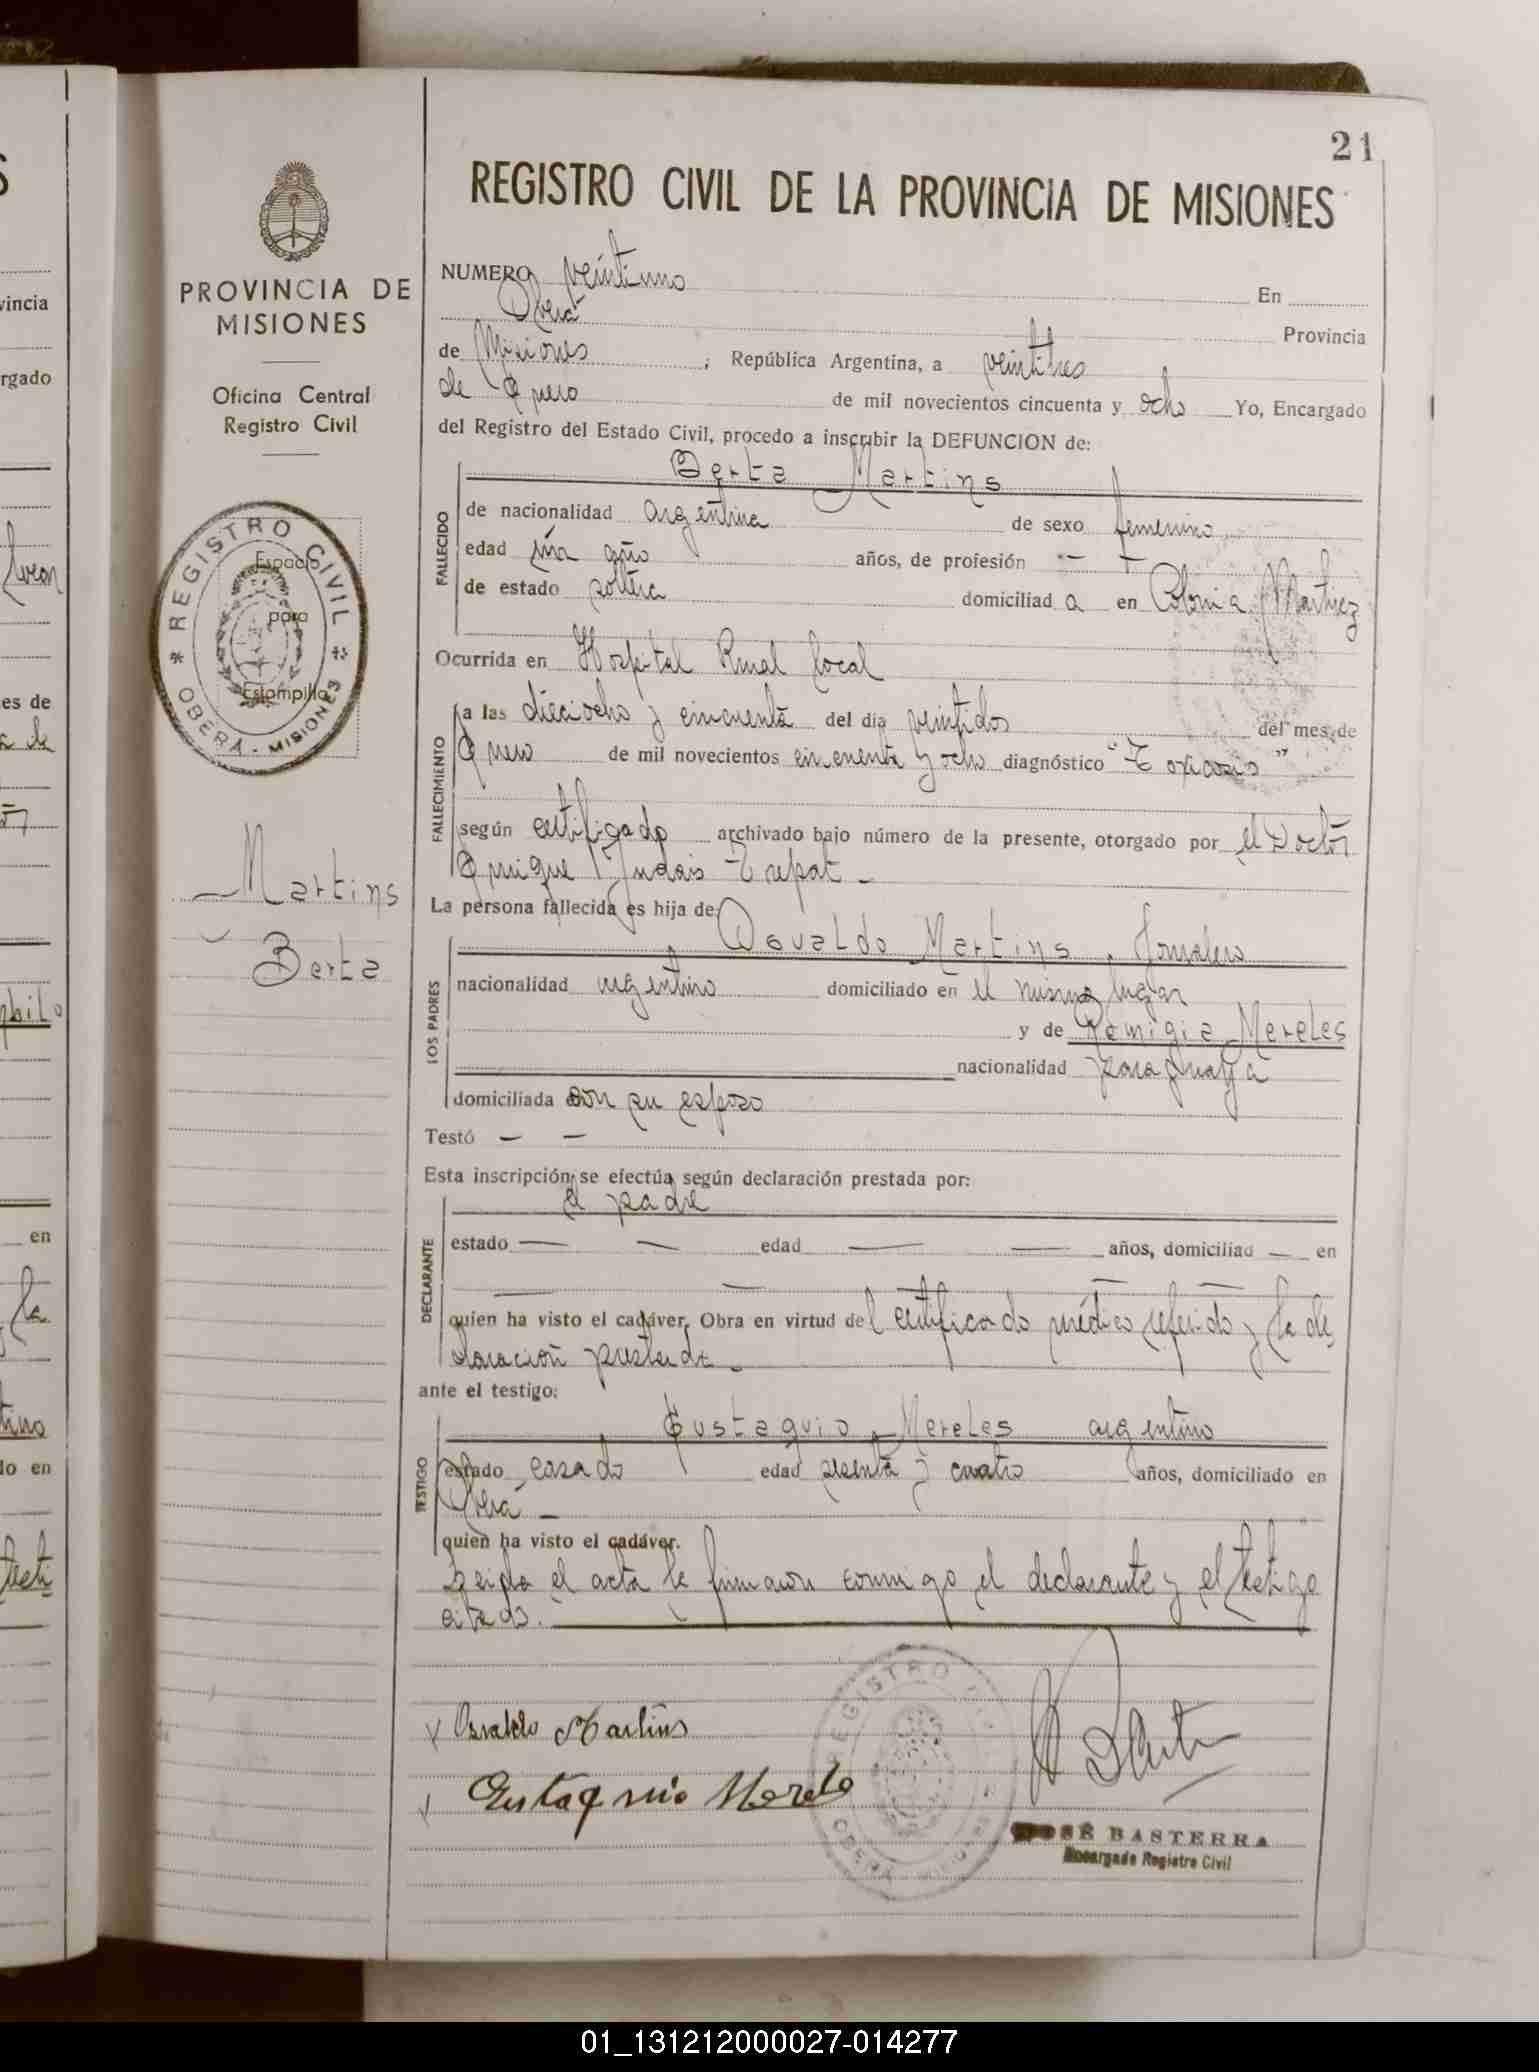 21
REGISTRO CIVIL DE LA PROVINCIA DE MISIONES
PROVINCIA DE
MISIONES
Oficina Central
Registro Civil
REGISTRO CIVIL
OBERÁ - MISIONES
Espacio
para
Estampilla
Martins
Berta
NUMERO veintiuno En
Oberá Provincia
de Misiones ; República Argentina, a veintitres
de Enero de mil novecientos cincuenta y ocho Yo, Encargado
del Registro del Estado Civil, procedo a inscribir la DEFUNCION de:
FALLECIDO
Berta Martins
de nacionalidad argentina de sexo femenino
edad un año años, de profesión — —
de estado soltera domiciliad a en Colonia Martirez
Ocurrida en Hospital Rural local
FALLECIMIENTO
a las dieciocho y cincuenta del día veintidos del mes de
Enero de mil novecientos cincuenta y ocho diagnóstico "Toxicosis"
según certificado archivado bajo número de la presente, otorgado por el Doctor
Enrique Trepat —
La persona fallecida es hija de
LOS PADRES
Osvaldo Martins, Jornalero
nacionalidad argentino domiciliado en el mismo lugar
y de Remigia Mereles
nacionalidad paraguaya
domiciliada con su esposo
Testó — —
Esta inscripción se efectúa según declaración prestada por:
DECLARANTE
el padre
estado — — edad — — años, domiciliad — en
— — —
quien ha visto el cadáver. Obra en virtud del certificado médico referido y la de
claración prestada —
ante el testigo:
TESTIGO
Eustaquio Mereles argentino
estado casado edad sesenta y cuatro años, domiciliado en
Oberá —
quien ha visto el cadáver.
Leida el acta la firmaron conmigo el declarante y el testigo
citado.
Osvaldo Martins
Eustaquio Merele
REGISTRO
OBERÁ
JOSÉ BASTERRA
Encargado Registro Civil
vincia
rgado
es de
en
la
tino
do en
01_131212000027-014277